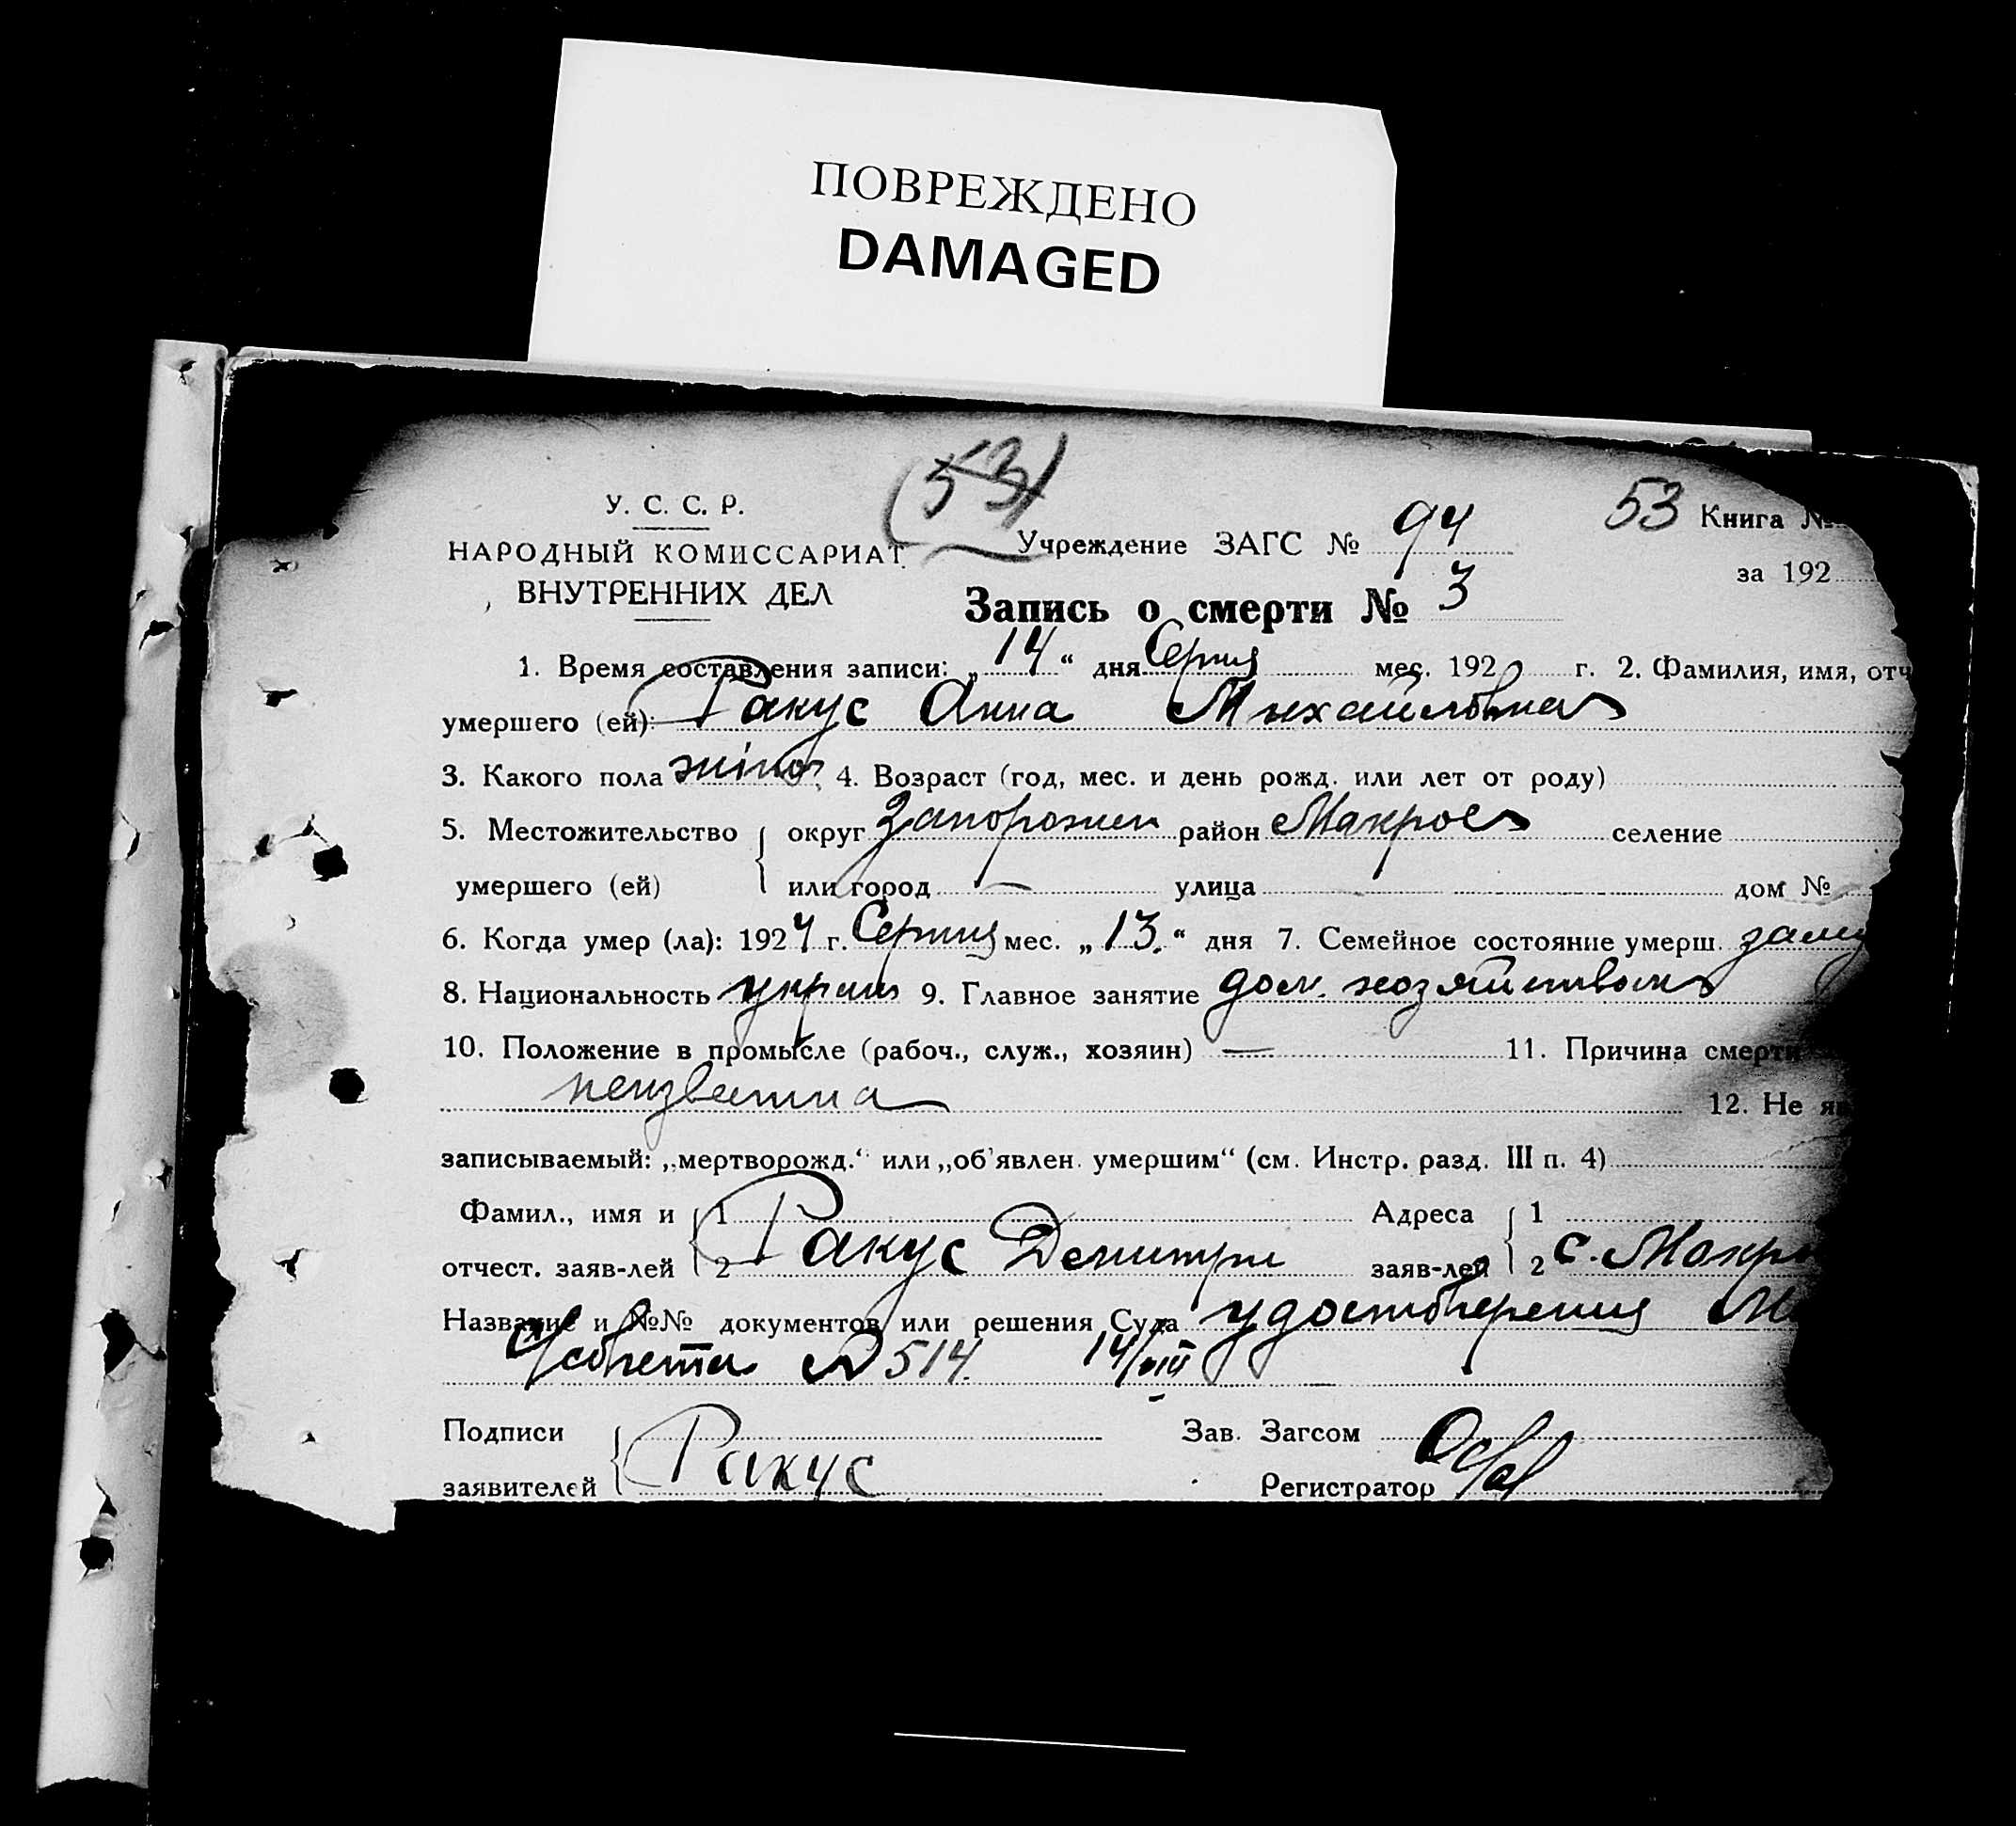 ПОВРЕЖДЕНО
DAMAGED
(53)
У. С. С. Р.
НАРОДНЫЙ КОМИССАРИАТ
ВНУТРЕННИХ ДЕЛ
Учреждение ЗАГС № 94
53 Книга №
за 192
Запись о смерти № 3
1. Время составления записи: „14“ дня Серпня мес. 192 г. 2. Фамилия, имя, отч
умершего (ей): Ракус Анна Михайловна
3. Какого пола жіноч. 4. Возраст (год, мес. и день рожд. или лет от роду)
5. Местожительство округ район селение
умершего (ей) или город — улица дом №
6. Когда умер (ла): 1924 г. Серпня мес. „13.“ дня 7. Семейное состояние умерш. заму
8. Национальность 9. Главное занятие дом. хозяйством
10. Положение в промысле (рабоч., служ., хозяин) — 11. Причина смерти
неизвестна
12. Не яв
записываемый: „мертворожд.“ или „об'явлен. умершим“ (см. Инстр. разд. III п. 4)
Фамил., имя и 1 Адреса 1
отчест. заяв-лей 2 Ракус Демитри заяв-лей 2 с. Мокр
Название и №№ документов или решения Суда удостоверения М
№ 514 14/VIII
Подписи Зав. Загсом
заявителей Ракус Регистратор